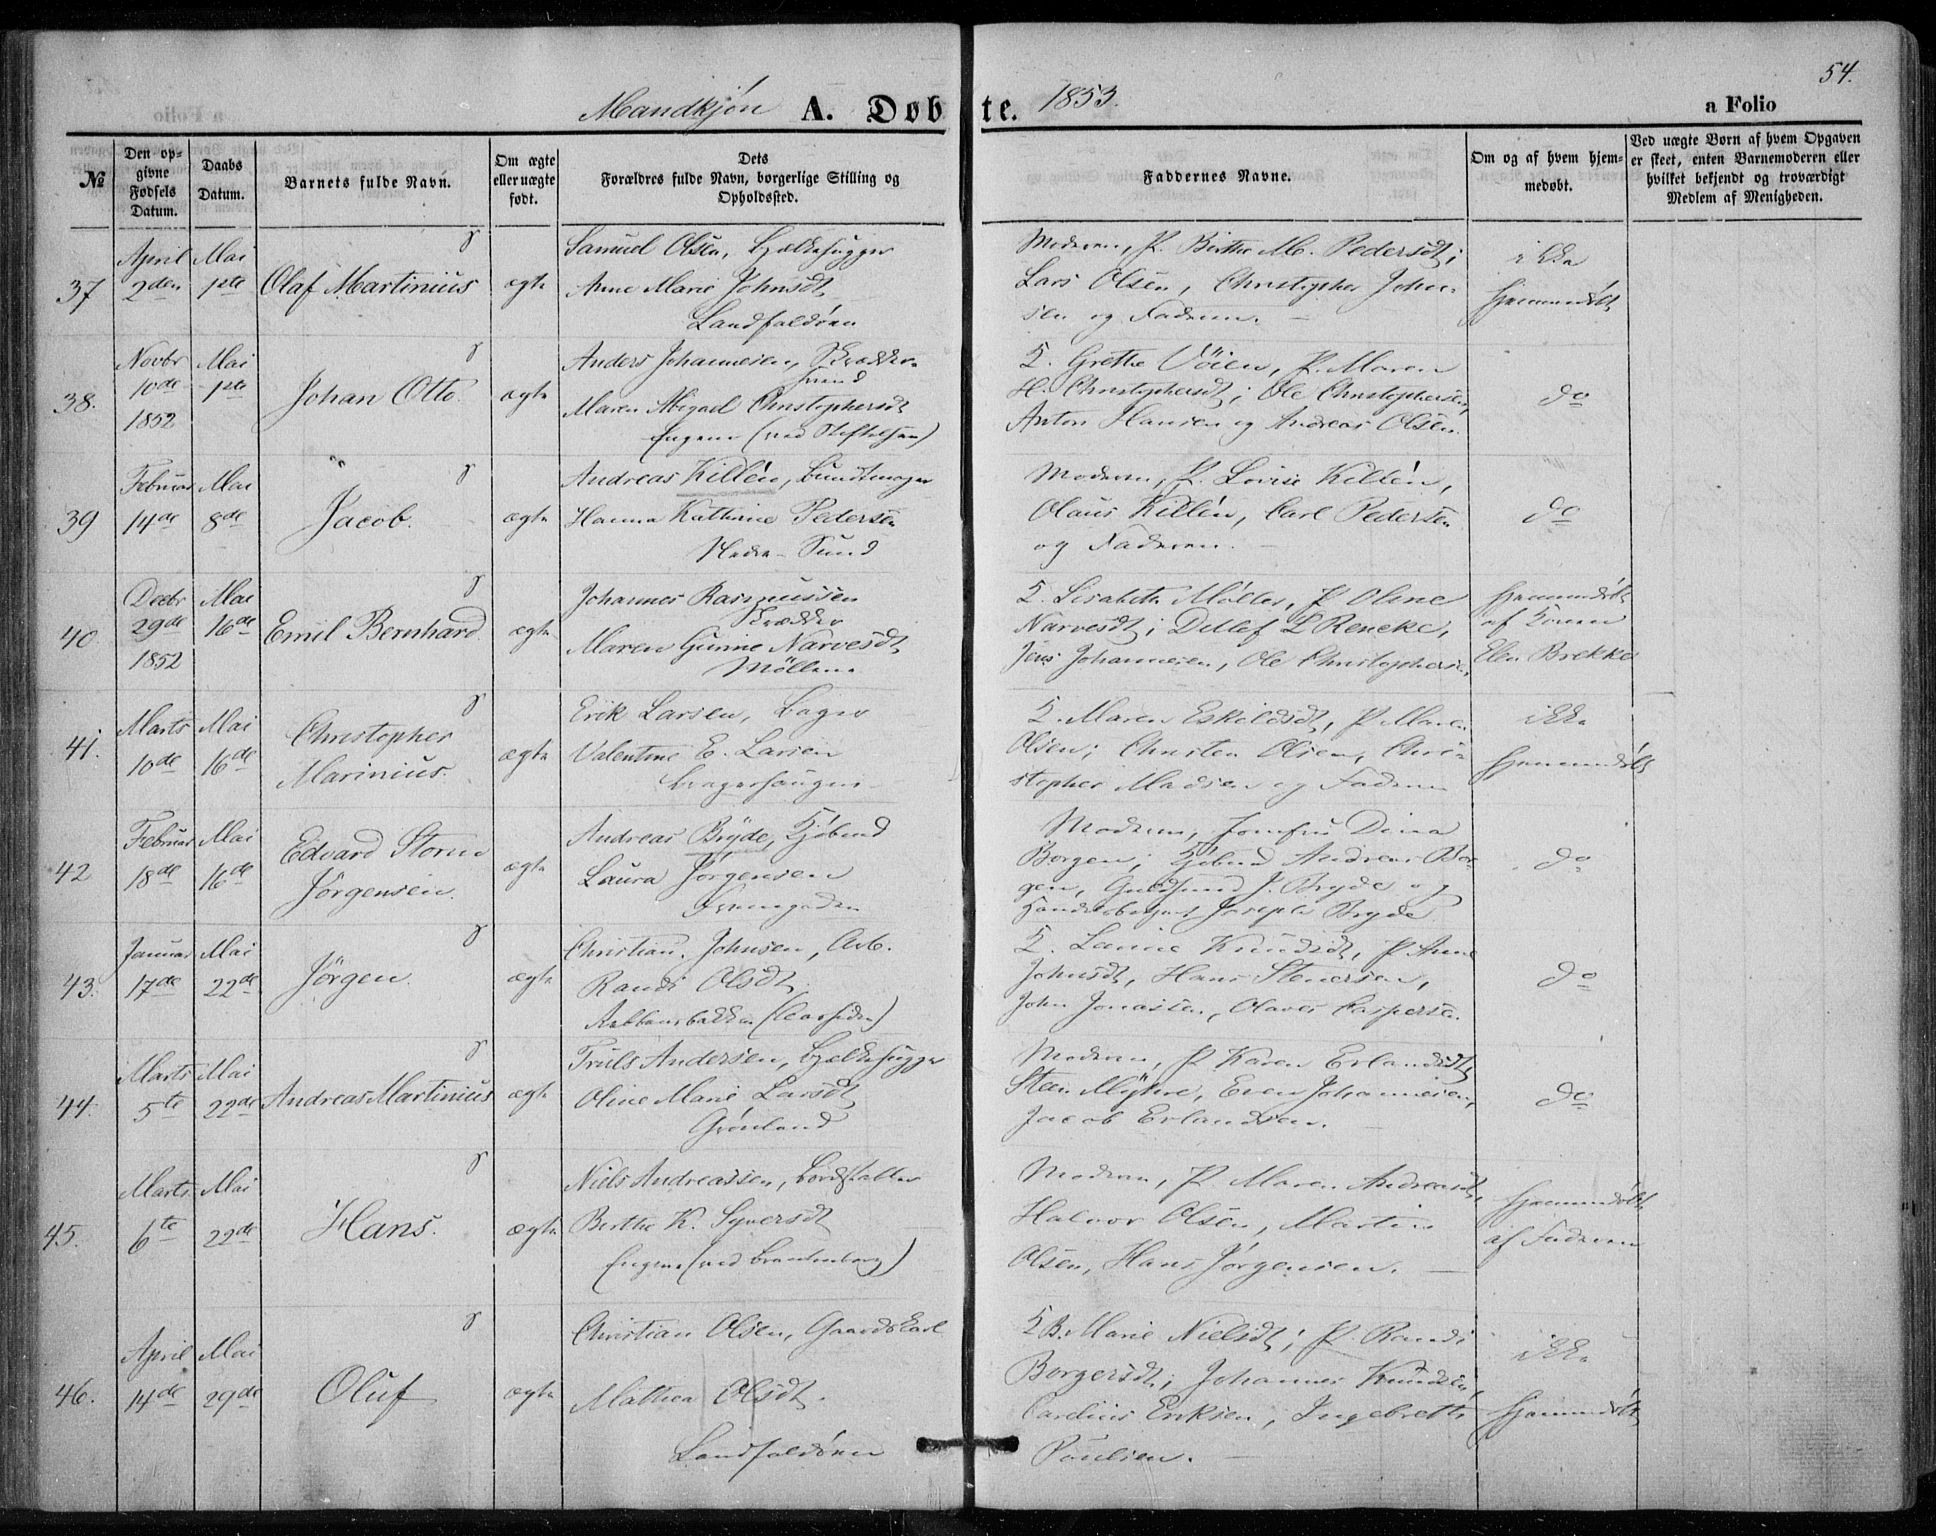 54.
Mandkjøn A. Døbte. 1853.
a Folio
№
Den op-
givne
Fødsels
Datum.
Daabs
Datum.
Barnets fulde Navn.
Om ægte
eller uægte
født.
Dets
Forældres fulde Navn, borgerlige Stilling og
Opholdssted.
Faddernes Navne.
Om og af hvem hjem-
medøbt.
Ved uægte Børn af hvem Opgaven
er skeet, enten Barnemoderen eller
hvilket bekjendt og troværdigt
Medlem af Menigheden.
37
April
2den
Mai
1ste
Olaf Martinius
ægte
Samuel Olsen, Bjelkehugger
Anne Marie Johnsdt
Landfaldøen
Moderen, P. Birthe M. Pedersdt;
Lars Olsen, Christopher Johan-
sen og Faderen.
ikke
hjemmedøbt
38.
Novbr
10de
1852
Mai
1ste
Johan Otto.
ægte
Anders Johannesen, Skrædder-
svend
Maren Abigael Christophersdt
Engene (ved Stiftelsen)
K. Grethe Vöien, P. Maren
H. Christophersdt; Ole Christophersen,
Anton Hansen og Andreas Olsen.
do
39
Februar
14de
Mai
8de
Jacob.
ægte
Andreas Killén, Bundtmager
Hanna Kathrine Pedersen
Nedre-Sund
Moderen, P. Lovise Killén,
Olaus Killén, Carl Pedersen
og Faderen.
do
40
Decbr
29de
1852
Mai
16de
Emil Bernhard.
ægte
Johannes Rasmussen
Skrædder
Maren Gunine Narvesdt
Möllene
K. Lisabeth Möller, P. Oline
Narvesdt; Detlef L Rencke,
Jens Johannesen, Ole Christophersen.
hjemmedøbt
af Konen
Elen Brekke
41.
Marts
10de
Mai
16de
Christopher
Marinius.
ægte
Erik Larsen, Bager
Valentine E. Larsen
Bragerhaugen
K. Maren Eskildsdt, P Maren
Olsen; Christen Olsen, Chri-
stopher Madsen og Faderen
ikke
hjemmedøbt
42
Februar
18de
Mai
16de
Edvard Storm
Jörgensen.
ægte
Andreas Bryde, Kjöbmd
Laura Jörgensen
Moderen, Jomfru Dina
Borgen; Kjöbmd Andreas Bor-
gen, J. Bryde og
Joseph Bryde
do
43.
Januar
17de
Mai
22de
Jörgen.
ægte
Christian Johnsen, Arb.
Randi Olsdt
K. Knudsdt, P Anne
Johnsdt, Hans Stenersen,
John Jonassen, Olaves Caspersen.
do
44.
Marts
5te
Mai
22de
Andreas Martinius
ægte
Truls Andersen, Bjelkehugger
Oline Marie Larsdt
Grönland
Moderen, P Karen Erlandsdt,
Steen Myhre, Even Johannesen,
Jacob Erlandsen.
do
45.
Marts
6te
Mai
22de
Hans.
ægte
Niels Andreassen, Bordstabler
Berthe K. Syversdt
Engene (ved Brandenborg)
Moderen, P Maren Andreasdt,
Halvor Olsen, Martin
Olsen, Hans Jörgensen.
hjemmedøbt
af Faderen
46.
April
14de
Mai
29de
Oluf
ægte
Christian Olsen, Gaardskarl
Mathea Olsdt.
Landfaldøen
K B. Marie Nielsdt; P Randi
Borgersdt; Johannes Knudsen,
Carelius Eriksen, Ingebrett
Paulsen.
ikke
hjemmedøbt